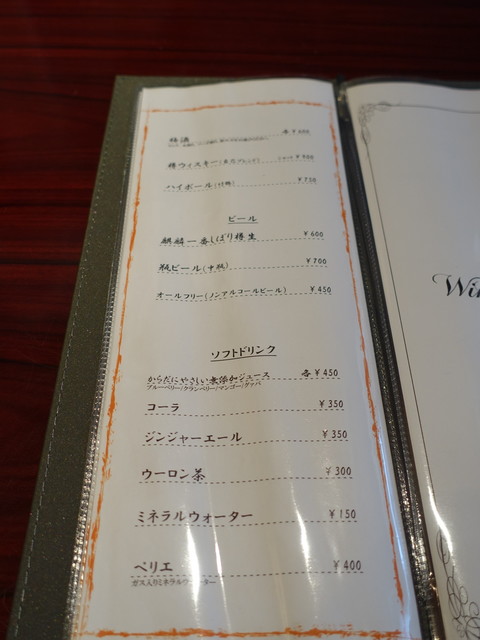 梅酒 各¥600
樽ウィスキー
ハイボール ¥720
ビール
麒麟一番しぼり樽生 ¥600
瓶ビール(中瓶) ¥700
オールフリー(ノンアルコールビール) ¥450
ソフトドリンク
からだにやさしい無添加ジュース 各¥450
ブルーベリー/クランベリー/マンゴー/グァバ
コーラ ¥350
ジンジャーエール ¥350
ウーロン茶 ¥300
ミネラルウォーター ¥150
ペリエ ¥400
ガス入りミネラルウォーター
Win